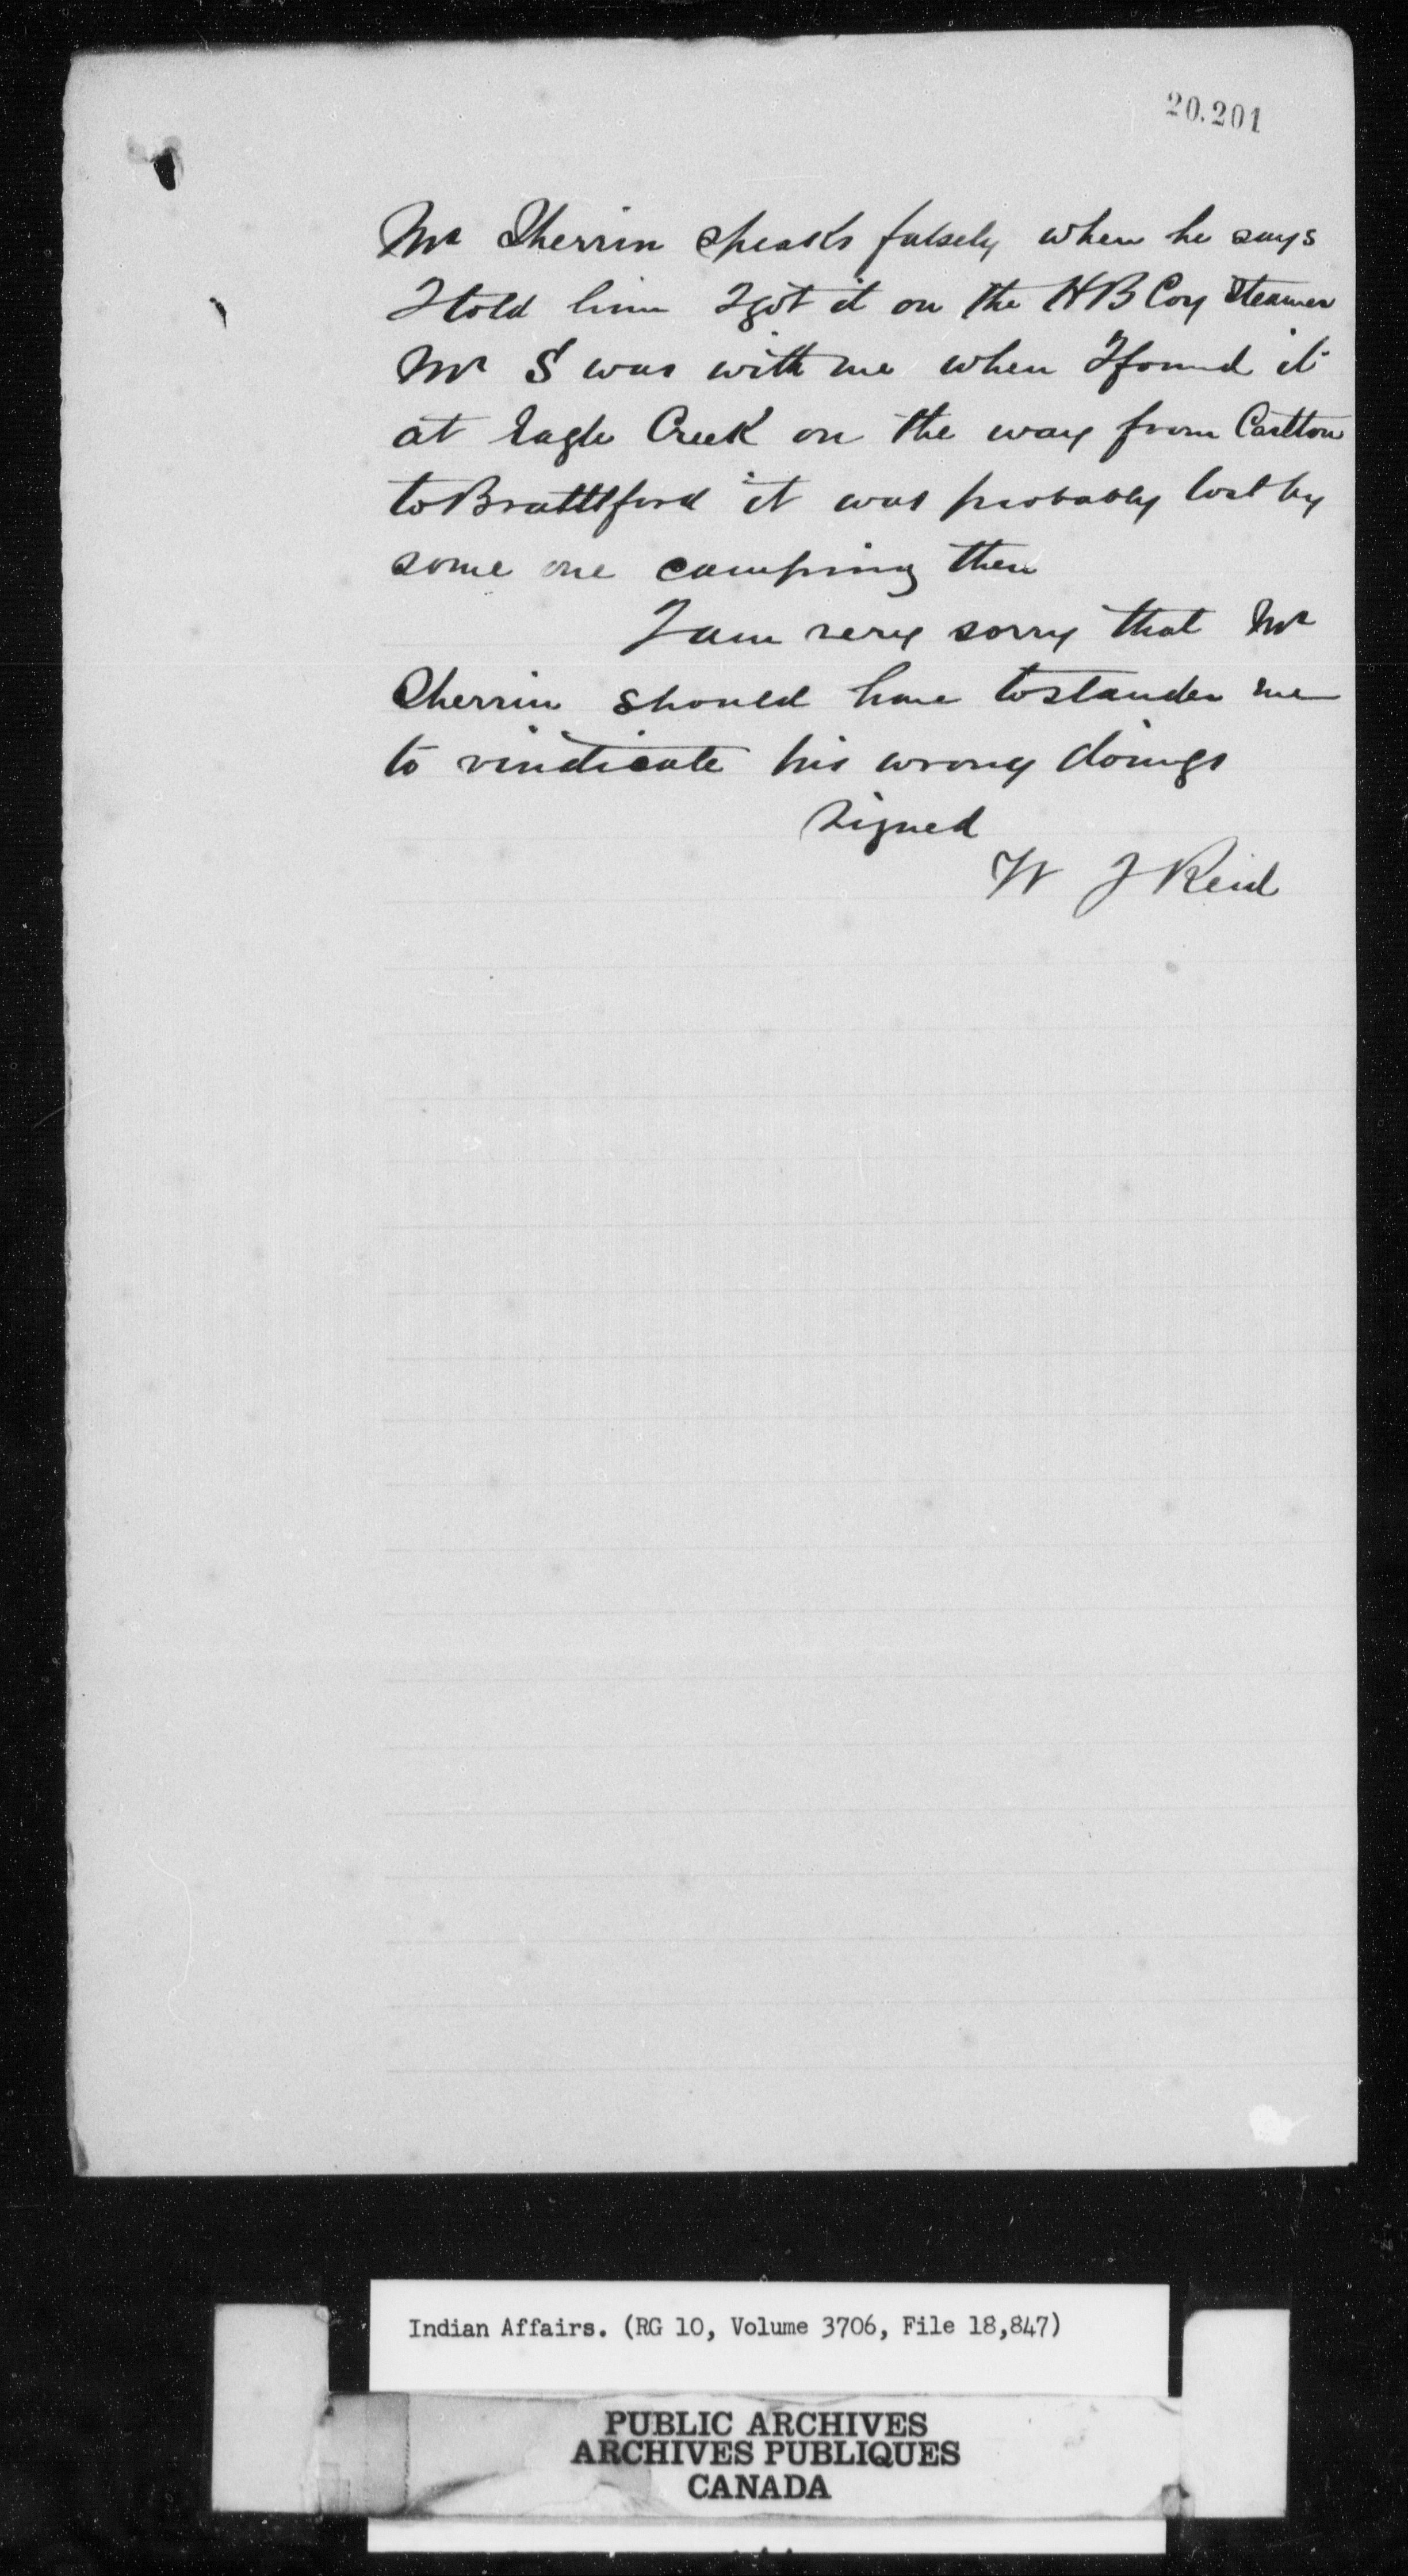 20.201
Mr Sherrin speaks falsely when he says
I told him I got it on the HB Coy Steamer
Mr S was with me when I found it
at Eagle Creek on the way from Carlton
to Brattlford it was probably lost by
some one camping then
I am very sorry that Mr
Sherrin should have to slander me
to vindicate his wrong doings
Signed
W J Reid
Indian Affairs. (RG 10, Volume 3706, File 18,847)
PUBLIC ARCHIVES
ARCHIVES PUBLIQUES
CANADA